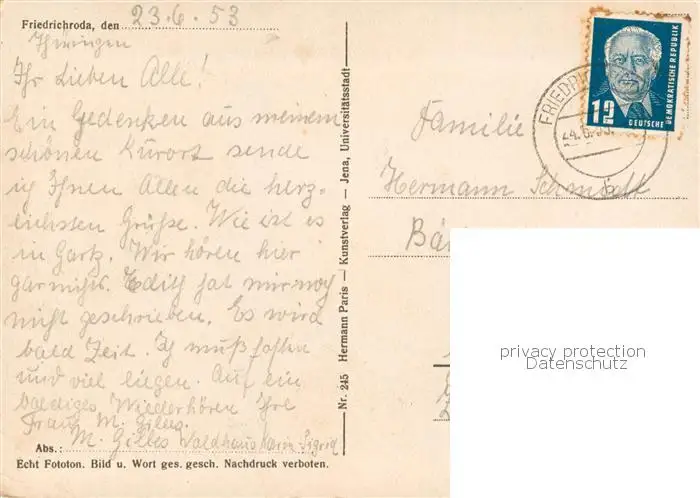 Friedrichroda, den 23.6.53
Thüringen
Ihr Lieben Alle!
Ein Gedenken aus meinem
schönen Kurort sende
ich Ihnen Allen die herz-
lichsten Grüße. Wie ist es
in Gartz. Wir hören hier
gar nichts. Edith hat mir noch
nicht geschrieben. Es wird
bald Zeit. Ich muß fasten
und viel liegen. Auf ein
baldiges Wiederhören Ihre
Frau M. Gilles.
Abs.: M. Gilles Waldhaus Maria Sigrid
Echt Fototon. Bild u. Wort ges. gesch. Nachdruck verboten.
Nr. 245 Hermann Paris — Kunstverlag — Jena, Universitätsstadt
DEUTSCHE DEMOKRATISCHE REPUBLIK
12
FRIEDR
24.6.53
Familie
Hermann Schmidt
Bä
privacy protection
Datenschutz